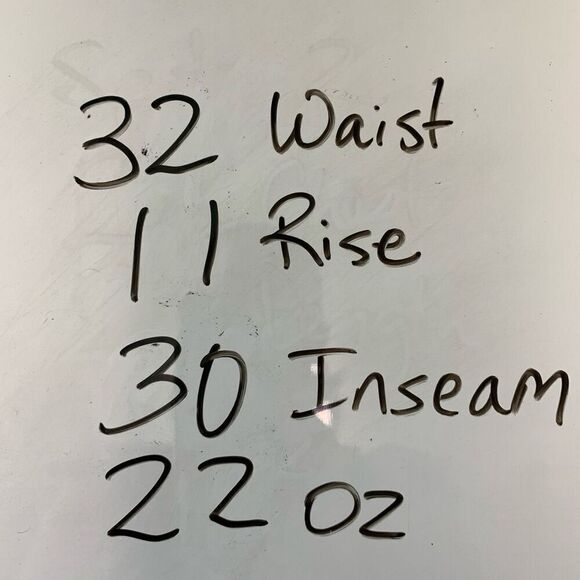 32 Waist
11 Rise
30 Inseam
22 oz